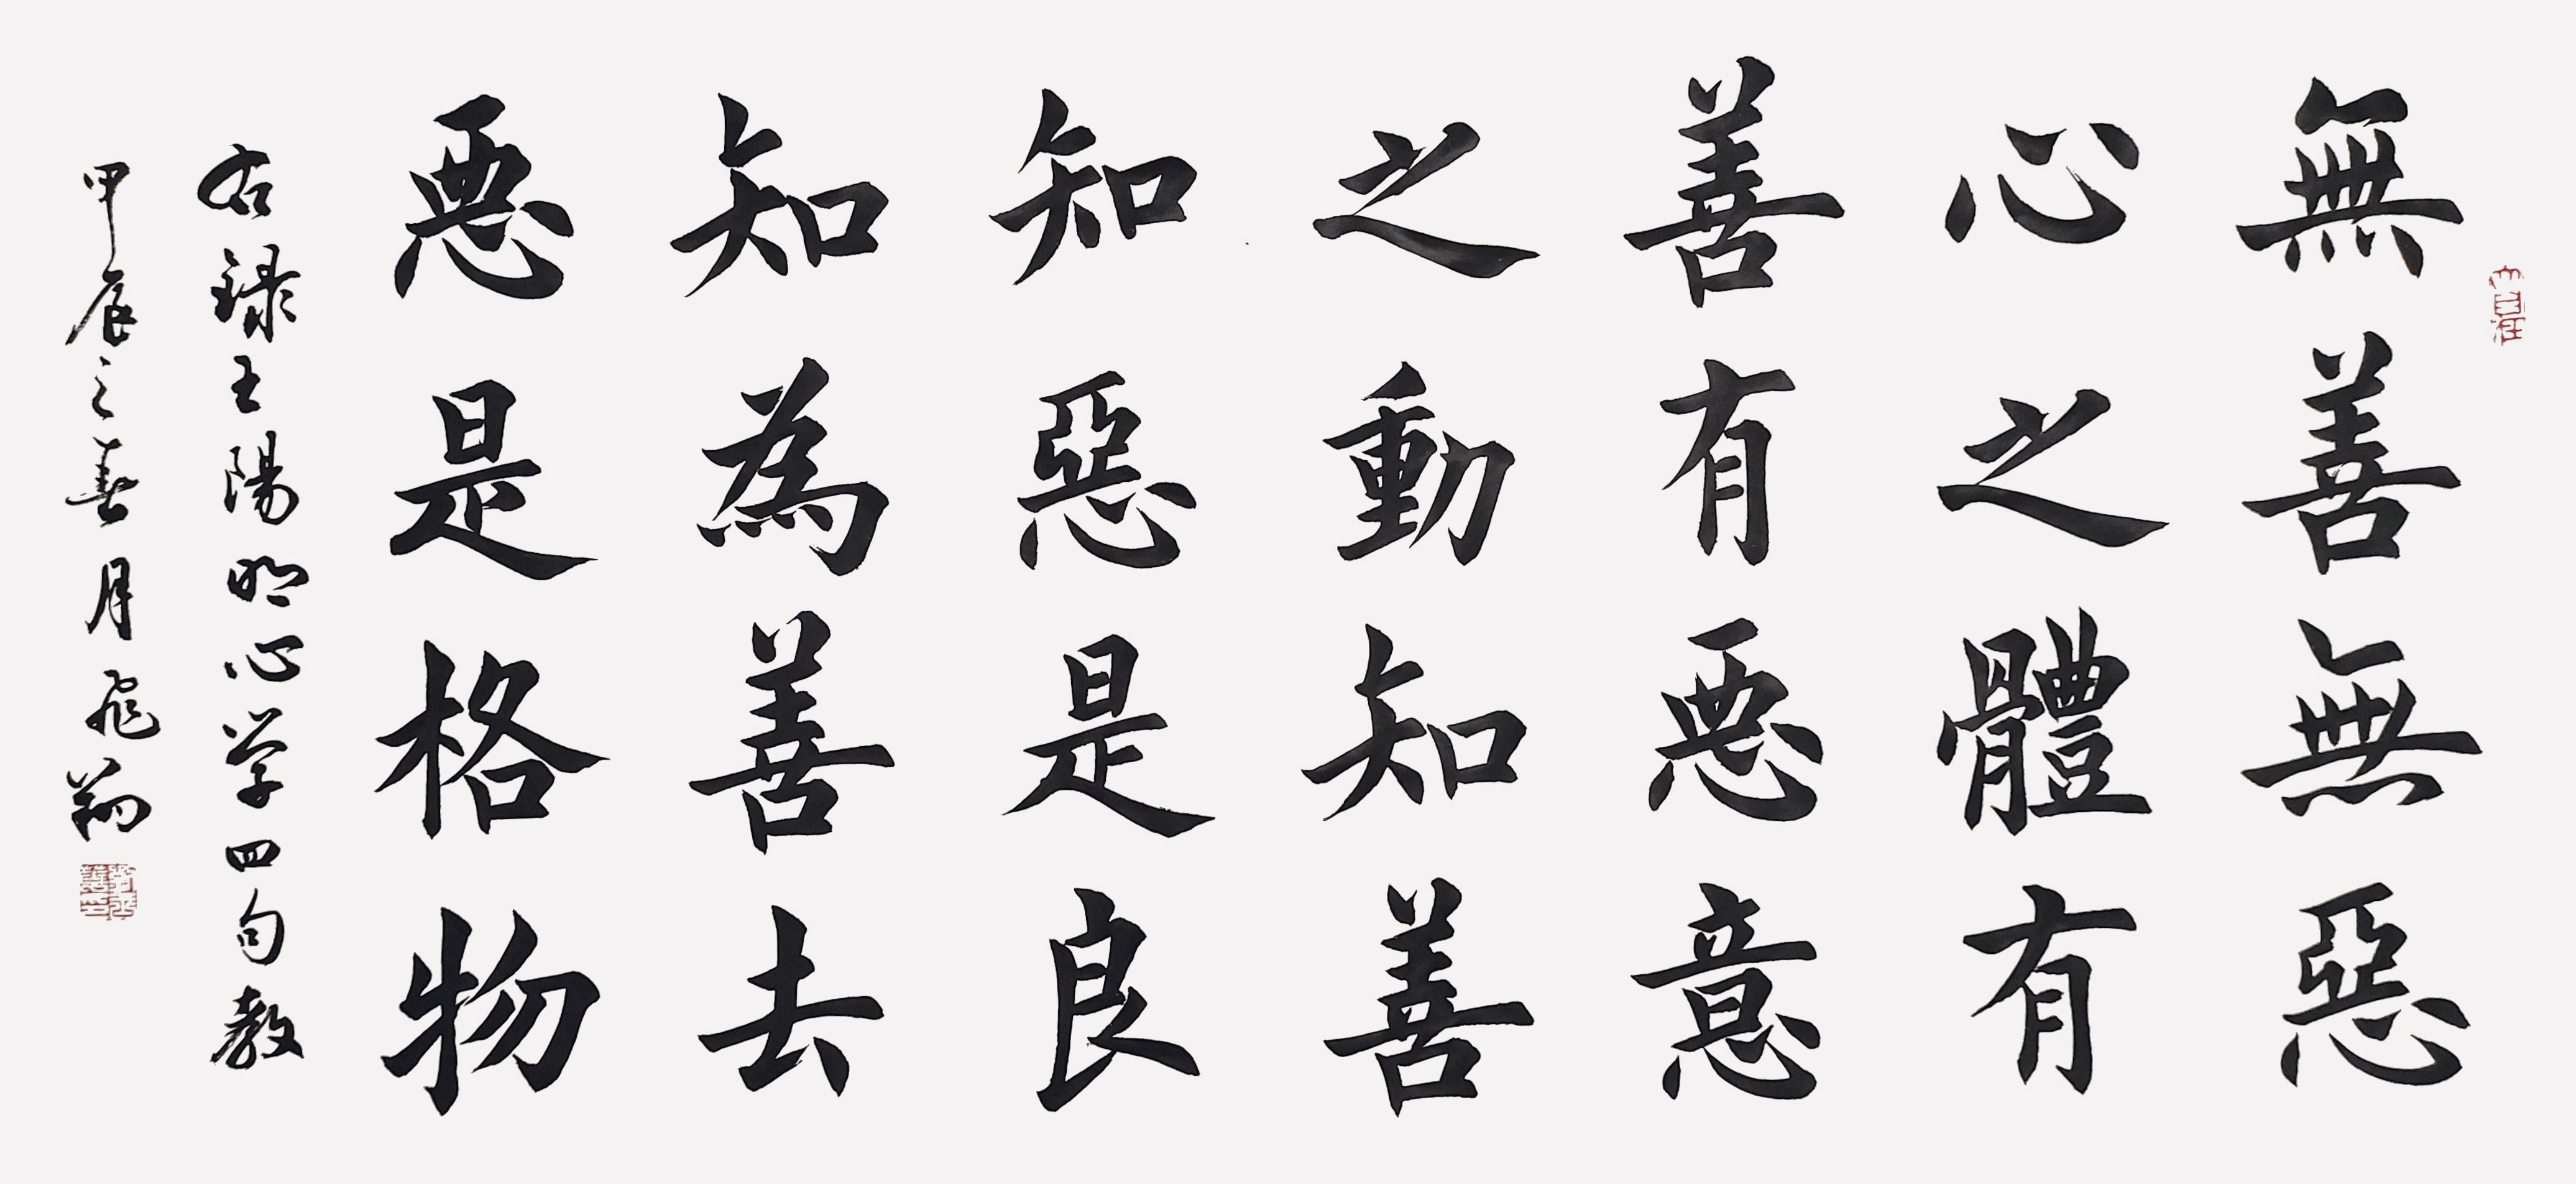 無善無惡
心之體有
善有惡意
之動知善
知惡是良
知為善去
惡是格物
右録王陽明心学四句教
甲辰之春月飛翔